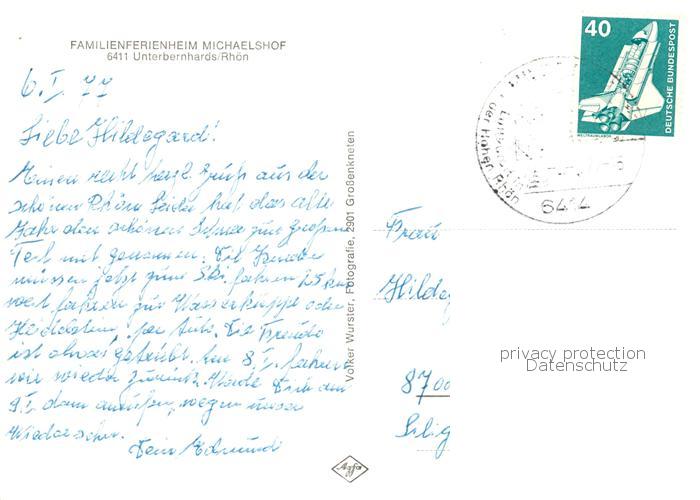 FAMILIENFERIENHEIM MICHAELSHOF
6411 Unterbernhards/Rhön
6. I. 77
Liebe Hildegard!
Meinen recht herzl. Gruß aus der
schönen Rhön. Leider hat das alte
Jahr den schönen Schnee zum großen
Teil mit genommen. Die Freunde
müssen jetzt zum Ski fahren 25 km
weit fahren zur Wasserkuppe oder
per Auto. Die Freude
ist etwas getrübt. Am 8. I. fahren
wir wieder zurück. Werde Dich am
9. I. dann anrufen, wegen unser
Wiedersehn.
Dein Edmund
Volker Wurster, Fotografie, 2901 Großenkneten
Agfa
40
DEUTSCHE BUNDESPOST
WELTRAUMLABOR
der Hohen Rhön
6414
Frau
Hildeg
8700
privacy protection
Datenschutz